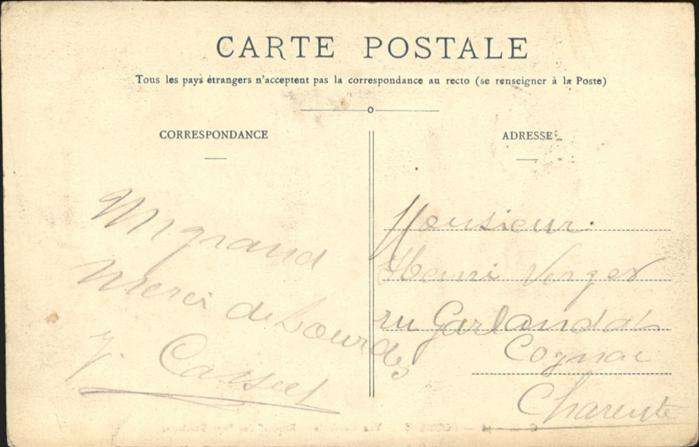 CARTE POSTALE
Tous les pays étrangers n'acceptent pas la correspondance au recto (se renseigner à la Poste)
CORRESPONDANCE
ADRESSE
Un grand
merci de Lourdes
Monsieur
Henri Verger
ru
Cognac
Charente